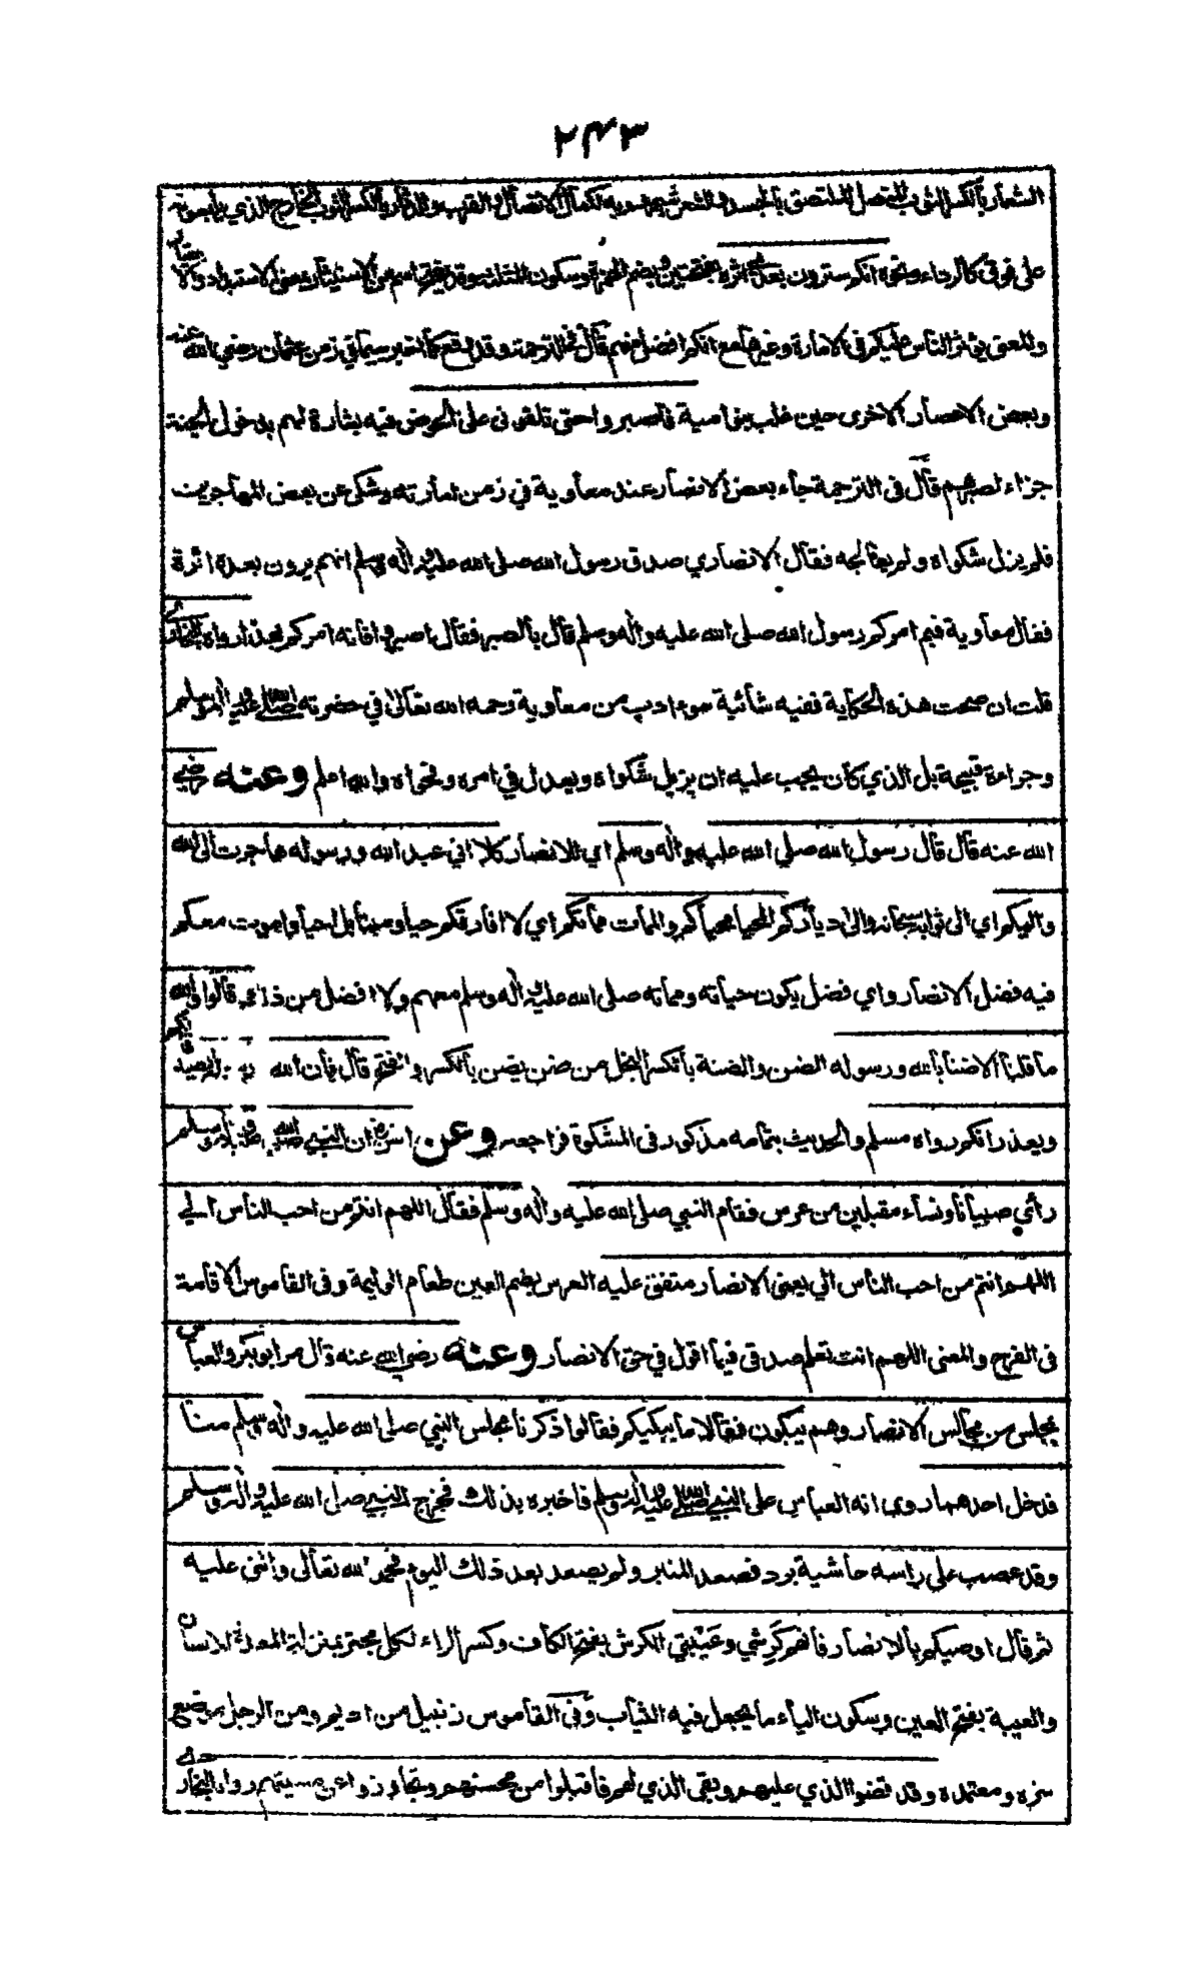 ٢٤٣
الشعار بالكسر الثوب المتصل الملتصق بالجسد والشعر شبههم به لكمال الاتصال والقرب والدثار بالكسر الثوب الخارج الذي يلبس
على فوق كالرداء ونحوه انكم سترون بعدي اثرة بفتحتين وبضم الهمزة وسكون المثلثة اسم من الاستيثار بمعنى الاستبداد
والمعنى يؤثر الناس عليكم في الامارة وغيرها مع انكم افضل منهم قال في الترجمة وقد وقع كما اخبر سيما في زمن عثمان رضي الله عنه
وبعض الاعصار الاخرى حين غلب بنو امية فاصبروا حتى تلقوني على الحوض فيه بشارة لهم بدخول الجنة
جزاء لصبرهم قال في الترجمة جاء بعض الانصار عند معاوية في زمن امارته وشكى عن بعض المهاجرين
فلم يزل شكواه ولم يعالجه فقال الانصاري صدق رسول الله صلى الله عليه واله وسلم انهم يرون بعده اثرة
فقال معاوية فبم امركم رسول الله صلى الله عليه واله وسلم قال بالصبر فقال اصبروا فانه امركم بهذا رواه البخاري
قلت ان صحت هذه الحكاية ففيه شائبة سوء ادب من معاوية رحمه الله تعالى في حضرته صلى الله عليه واله وسلم
وجراءة قبيحة بل الذي كان يجب عليه ان يزيل شكواه ويعدل في امره ونحواه والله اعلم وعنه رضي
الله عنه قال قال رسول الله صلى الله عليه واله وسلم اي للانصار كلا اني عبد الله ورسوله هاجرت الى الله
واليكم اي الى ثوابه سبحانه والى دياركم المحيا محياكم والممات مماتكم اي لا افارقكم حيا وميتا بل احيا واموت معكم
فيه فضل الانصار واي فضل يكون حياته ومماته صلى الله عليه واله وسلم معهم ولا افضل من ذلك قالوا والله
ما قلنا الا ضنا بالله ورسوله الضن والضنة بالكسر البخل من ضن يضن بالكسر والفتح قال فان الله ورسوله يصدقانكم
ويعذرانكم رواه مسلم والحديث بتمامه مذكور في المشكوة فراجعه وعن انس رض ان النبي صلى الله عليه واله وسلم
رأى صبيانا ونساء مقبلين من عرس فقام النبي صلى الله عليه واله وسلم فقال اللهم انتم من احب الناس الي
اللهم انتم من احب الناس الي يعني الانصار متفق عليه العرس بضم العين طعام الوليمة وفي القاموس الاقامة
في الفرح والمعنى اللهم انت تعلم صدقي فيما اقول في حق الانصار وعنه رضي الله عنه قال مر ابو بكر والعباس
بمجلس من مجالس الانصار وهم يبكون فقالا ما يبكيكم فقالوا ذكرنا مجلس النبي صلى الله عليه واله وسلم منا
فدخل احدهما روي انه العباس على النبي صلى الله عليه واله وسلم فاخبره بذلك فخرج النبي صلى الله عليه واله وسلم
وقد عصب على راسه حاشية برد فصعد المنبر ولم يصعد بعد ذلك اليوم فحمد الله تعالى واثنى عليه
ثم قال اوصيكم بالانصار فانهم كَرِشي وعَيْبتي الكرش بفتح الكاف وكسر الراء لكل مجتر بمنزلة المعدة للانسان
والعيبة بفتح العين وسكون الياء ما يجعل فيه الثياب وفي القاموس زنبيل من اديم ومن الرجل موضع
سره ومعتمده وقد قضوا الذي عليهم وبقي الذي لهم فاقبلوا من محسنهم وتجاوزوا عن مسيئهم رواه البخاري